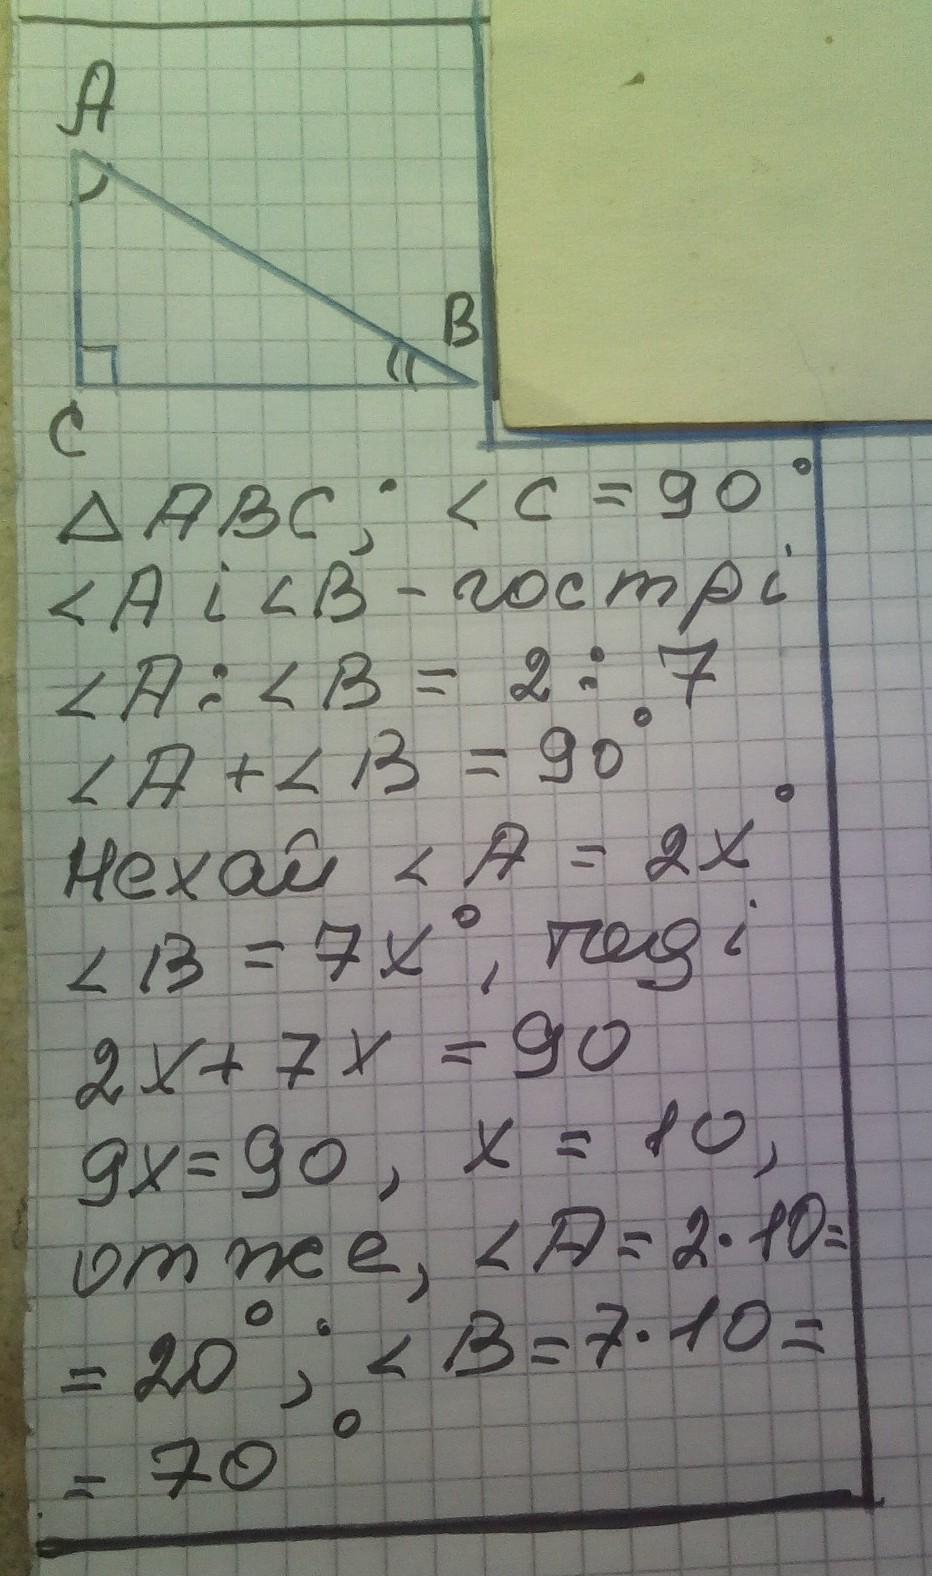 A
B
C
△ABC; <C = 90°
<A і <B - гострі
<A : <B = 2 : 7
<A + <B = 90°
Нехай <A = 2x°
<B = 7x°, тоді
2x + 7x = 90
9x = 90, x = 10,
отже, <A = 2·10 =
= 20°; <B = 7·10 =
= 70°